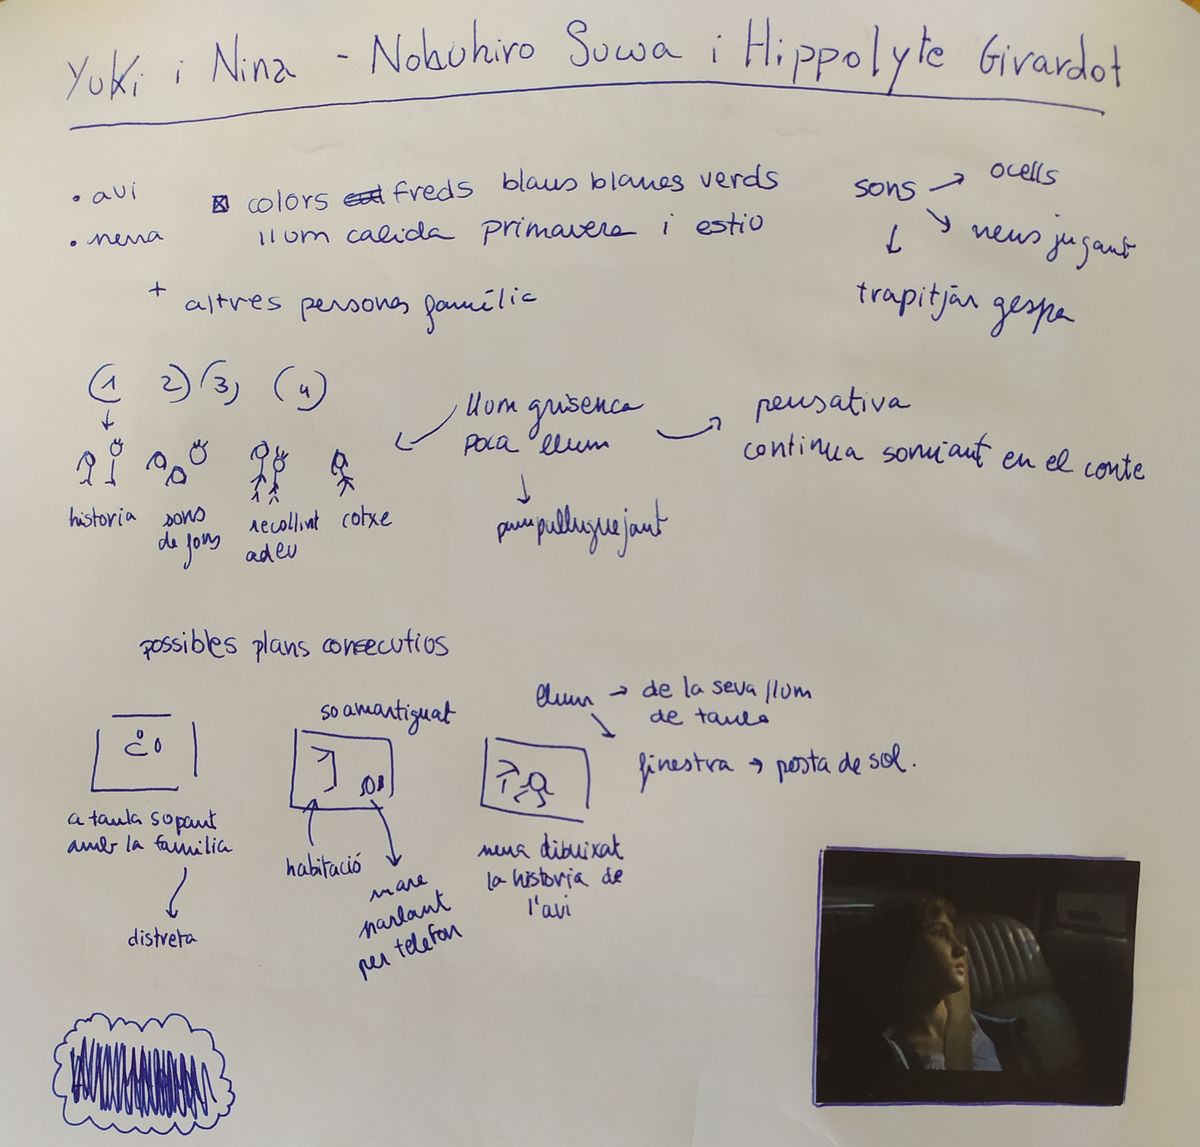 Yuki i Nina - Nobuhiro Suwa i Hippolyte Girardot
• avi
• nena
colors freds blaus blanes verds
llum calida primavera i estiu
+ altres persones família
sons → ocells
nens jugant
trapitjàr gespa
(1 2) (3) (4)
historia
sons
de fons
recollint
adeu
cotxe
llum grisenca
poca llum
pampalluguejant
pensativa
continua somiant en el conte
possibles plans consecutios
a taula sopant
amb la familia
distreta
so amortiguat
habitació
mare
parlant
per telefon
llum → de la seva llum
de taula
finestra → posta de sol.
nena dibuixat
la historia de
l'avi